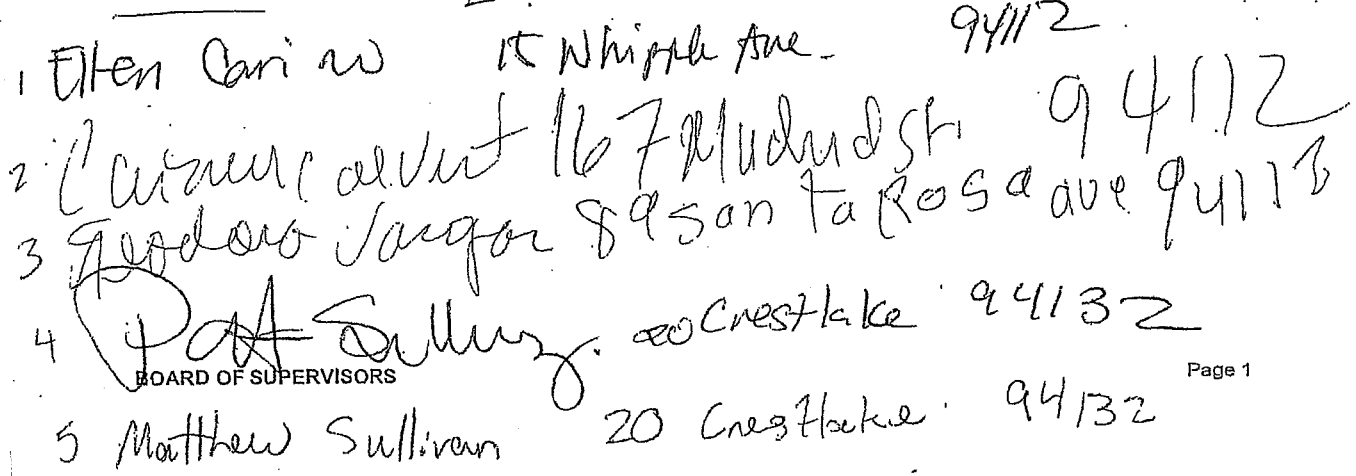 1 Ellen Carino 15 Whipple Ave. 94112
2 Calvert 167 St. 94112
3 Teodoro Vargas 89 Santa Rosa ave 94112
4 Pat Sullivan. 20 Crestlake 94132
BOARD OF SUPERVISORS Page 1
5 Matthew Sullivan 20 Crestlake 94132